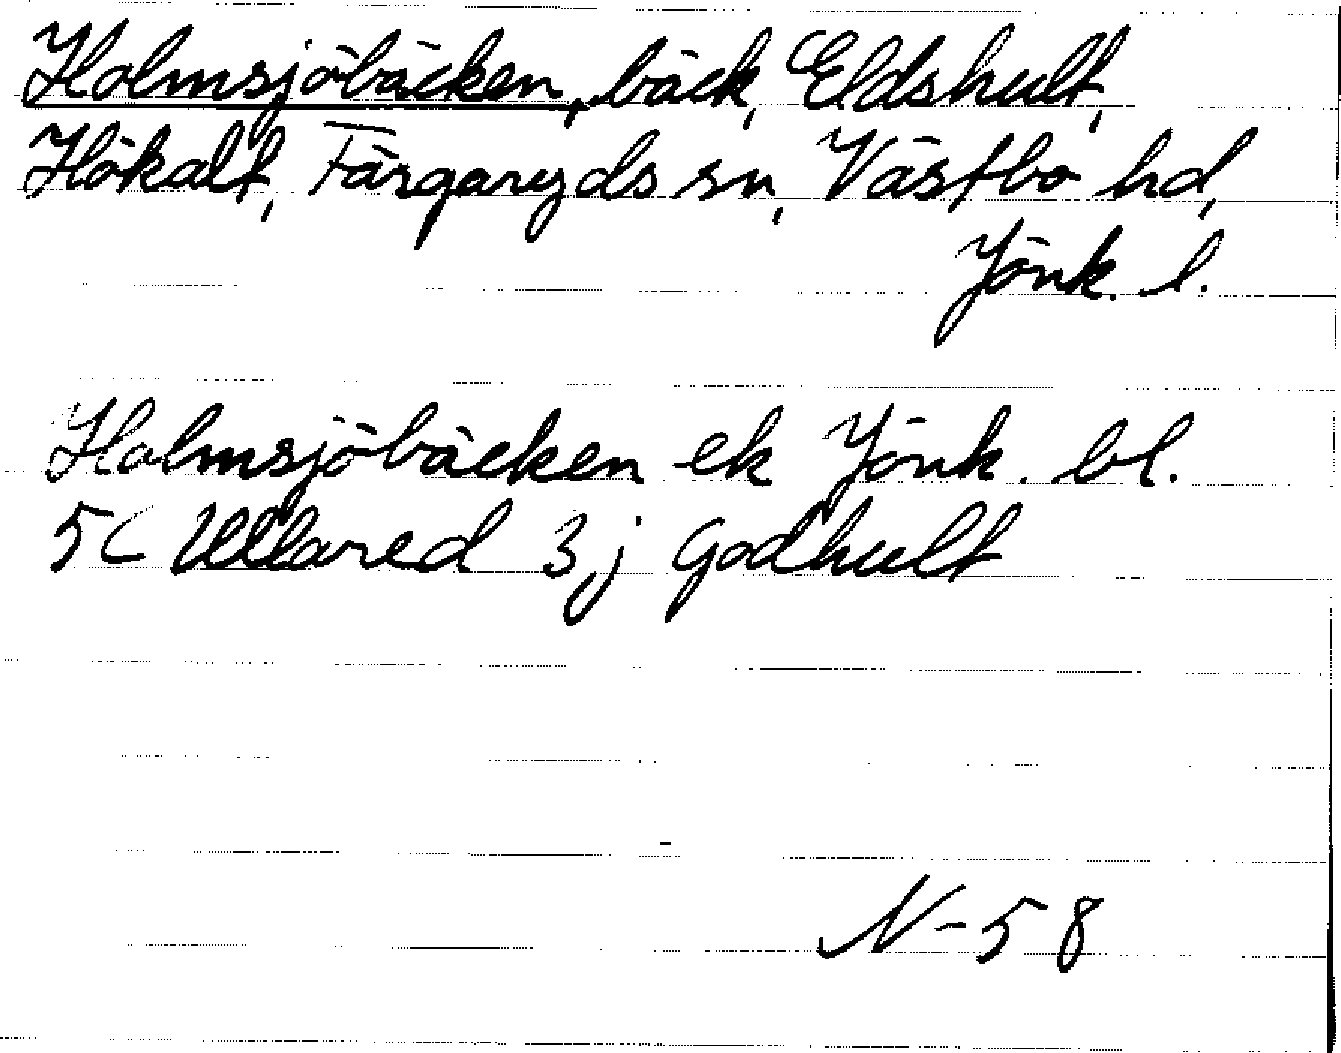 Holmsjöbäcken, bäck, Eldshult,
Hökalt, Färgaryds sn, Västbo hd,
Jönk. l.
Holmsjöbäcken ek Jönk. bl.
5C Ullared 3j Godhult
N-58